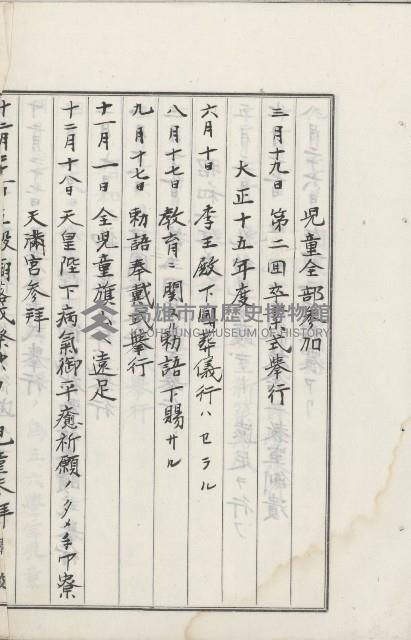 児童全部参加
三月十九日 第二回卒業式挙行
大正十五年度
六月十日 李王殿下国葬儀行ハセラル
八月十七日 教育ニ関スル勅語下賜サル
九月十七日 勅語奉戴式挙行
十一月一日 全児童旗山ニ遠足
十二月十八日 天皇陛下病気御平癒祈願ノタメ手巾寮
天粛宮参拝
高雄市立歴史博物館
KAOHSIUNG MUSEUM OF HISTORY